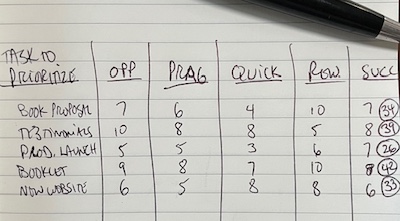 TASK TO
PRIORITIZE OPP PRAG QUICK ROW. SUCC
BOOK PROPOSAL 7 6 4 10 7 34
TESTIMONIALS 10 8 8 5 8 39
PROD. LAUNCH 5 5 3 6 7 26
BOOKLET 9 8 7 10 8 42
NOW WEBSITE 6 5 8 8 6 33